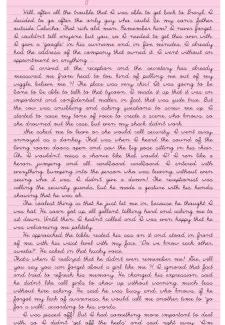 Well, after all the trouble that I was able to get back to
decided to go after the only guy who could be my son's father
outside Calcutta. That rich old man. Remember him? I never forget
I couldn't tell anyone but you, so I needed to go this son with
I gave a 'google' in his surname and, in five minutes, I already
had the address of the company that owned it. I went without an
appointment or anything...
I arrived at the reception and the secretary has already
measured me from head to toe kind of pulling me out of my
was very chic! I was going to be
lame to be able to talk to that tycoon. I made it up that it was an
important and confidential matter, in fact, that was quite true. But
the cow was snubbing and asking questions to screw me up. I
started to raise my tone of voice to create a scene, who knows, so
she drowned out the case, but even my shock didn't work.
she asked me to leave or she would call security. I went away,
annoyed as a donkey. That was when I heard the sound of the
living room doors open and saw the big nose sitting in his chair.
Oh, I wouldn't miss a chance like that, would I? I ran like a
horse, jumping and all
everything, bumping into the person who was leaving without even
seeing who it was. I didn't give a damn! The receptionist was
calling the security guards, but he made a gesture with his hands
showing that he was ok.
The coolest thing is that he just let me in, because he thought I
was hot. He soon got up all gallant, talking hand and asking me to
sit down. Until then, I hadn't called and I was even happy that he
was welcoming me politely.
He approached the table, rested his ass on it and stood in front
of me with his usual bowl with my face. "Do we know each other,
sweetie?" He asked in that husky voice.
That's when I realized that he didn't even remember me! Gee, will
you say you can forget about a girl like me? I ignored that fact
and tried to refresh his memory. He changed his expression, said
he didn't like call girls to show up without warning, much less
without him asking. He said he was busy and, who knows, if he
forgot my lack of awareness, he would call me another time to 'go
for a walk', according to his words.
I was pissed off! But I had something more important to deal
with, so I didn't 'get off the heels' and said right away: "I'm